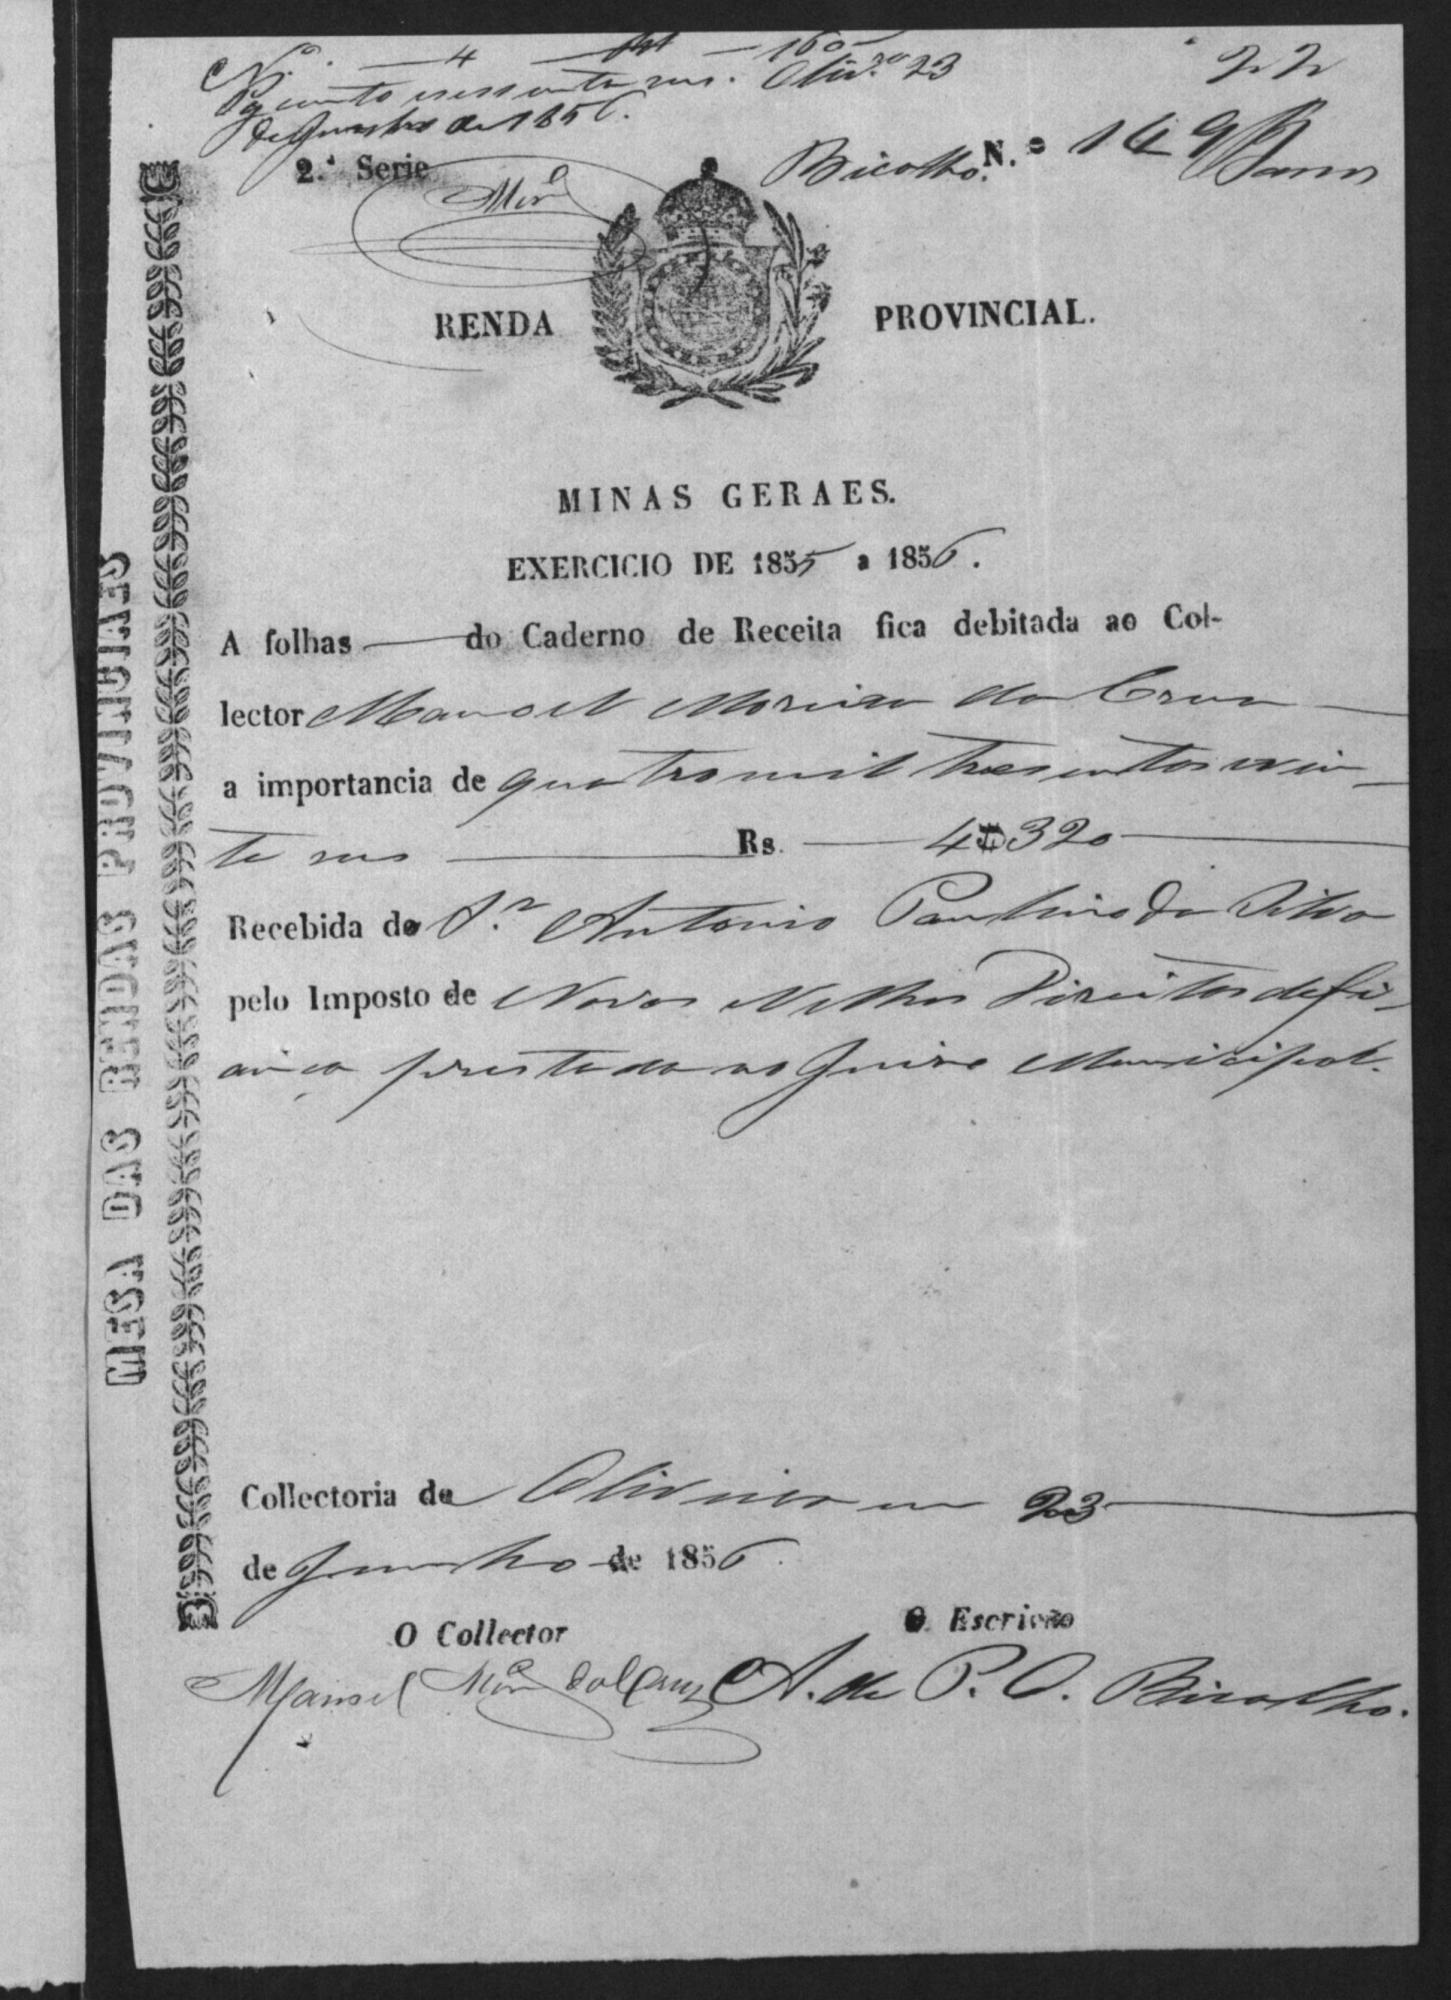 N.º — 4 — 160
Pg cento e sessenta reis. Olivrª 23
de Junho de 1856.
22
2.ª Serie
Morª
Bicalho.
N.º 149
RENDA PROVINCIAL.
MINAS GERAES.
EXERCICIO DE 1855 a 1856.
A folhas — do Caderno de Receita fica debitada ao Col-
lector Manoel Moreira da Cruz —
a importancia de quatro mil tresentos e vin-
te reis — Rs. — 4$320 —
Recebida do Sr. Antonio Paulino da Silva
pelo Imposto de Novos e Velhos Direitos de fi-
ança prestada no Juizo Municipal.
Collectoria da Oliveira em 23 —
de Junho de 1856.
O Collector O Escrivão
Manoel Morª da Cruz A. de P. O. Bicalho.
MESA DAS RENDAS PROVINCIAES